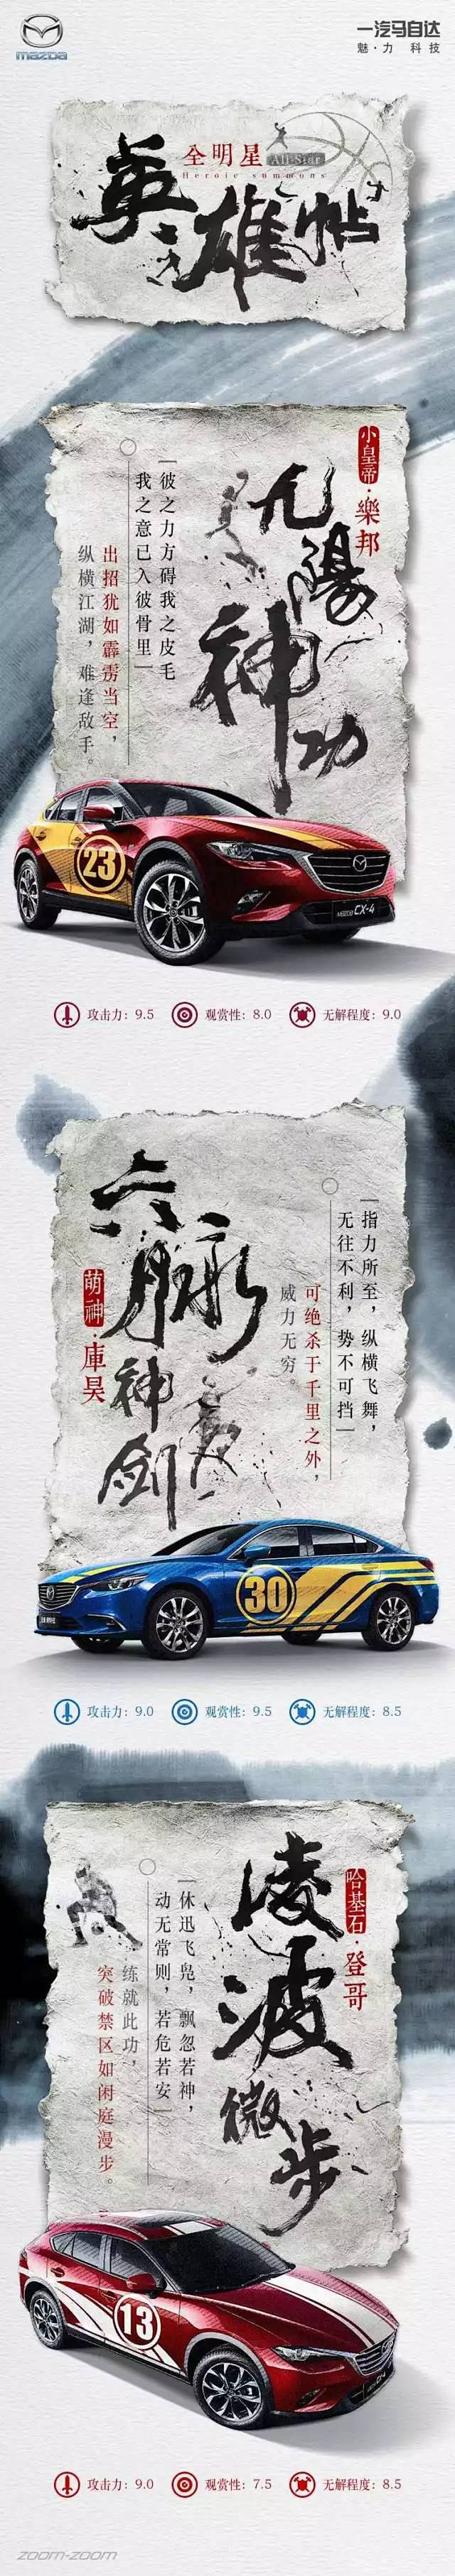 mazda
一汽马自达
魅·力 科技
全明星 All-Star
Heroic summons
英雄帖
小皇帝·樂邦
九陽神功
彼之力方碍我之皮毛
我之意已入彼骨里
出招犹如霹雳当空，
纵横江湖，难逢敌手。
23
MAZDA CX-4
攻击力：9.5 观赏性：8.0 无解程度：9.0
六脉神剑
萌神·庫昊
指力所至，纵横飞舞，
无往不利，势不可挡
可绝杀于千里之外，
威力无穷。
30
攻击力：9.0 观赏性：9.5 无解程度：8.5
哈基石·登哥
凌波微步
休迅飞凫，飘忽若神，
动无常则，若危若安
练就此功，
突破禁区如闲庭漫步。
13
攻击力：9.0 观赏性：7.5 无解程度：8.5
zoom-zoom